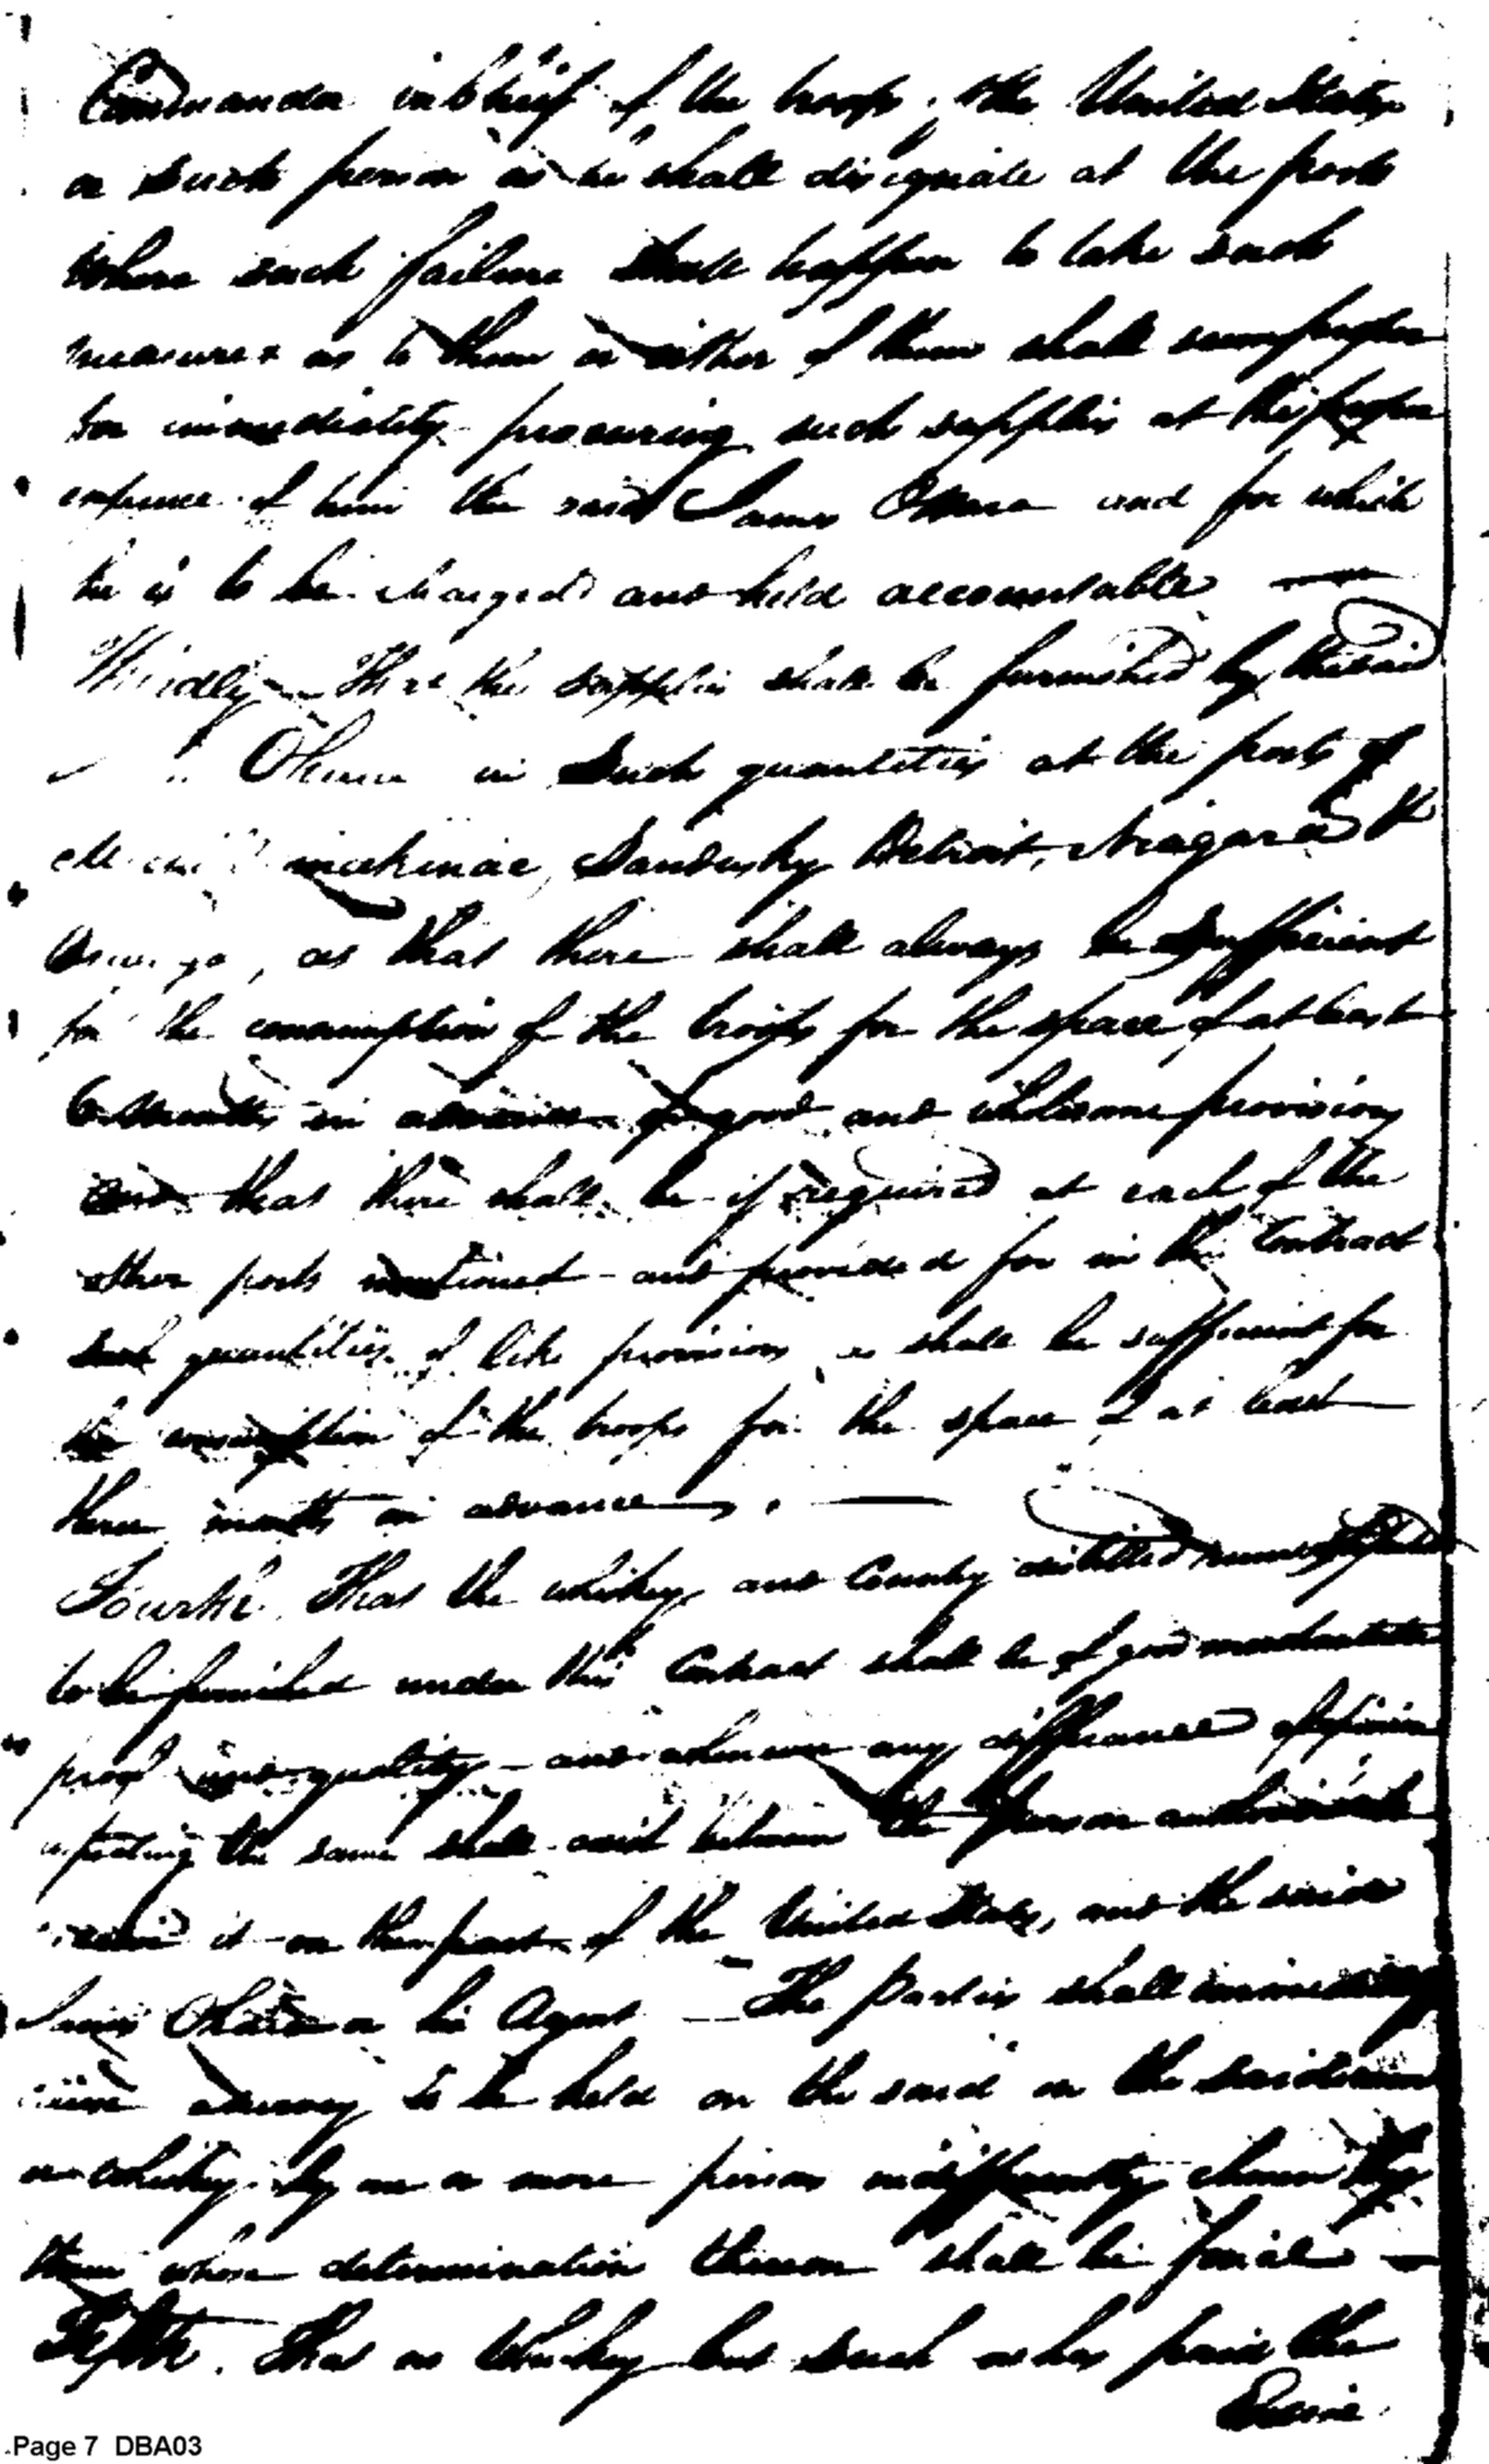 Commander in Chief of the troops of the United States
or such person as he shall designate at the posts
where such failure shall happen to take such
measures as to them or either of them shall seem proper
for immediately procuring such supplies at the proper
expence of him the said James OHara and for which
he is to be charged and held accountable
Thirdly That the supplies shall be furnished by the said
OHara in such quantities at the posts of
mackinac, Sandusky Detroit, Niagara &
Oswego, as that there shall always be sufficient
for the consumption of the troops for the space of at least
6 Months in advance of good and wholesome provisions
and that there shall be if required at each of the
other posts mentioned and provided for in this Contract
such quantities of like provisions as shall be sufficient for
the consumption of the troops for the space of at least
three months in advance.
Fourth. That the whiskey and Country distilled rum
to be furnished under this Contract shall be of good merchantable
proof and quality - and whenever any difference of opinion
respecting the same shall arise between the person authorised
receive it on the part of the United States, and the said
James OHara or his Agent The parties shall immediately
cause a survey to be held on the said or the said rum
or whiskey by one or more persons indifferently chosen by
them whose determination thereon shall be final
Fifth. That no Whiskey but such as has paid the
Excise
Page 7 DBA03